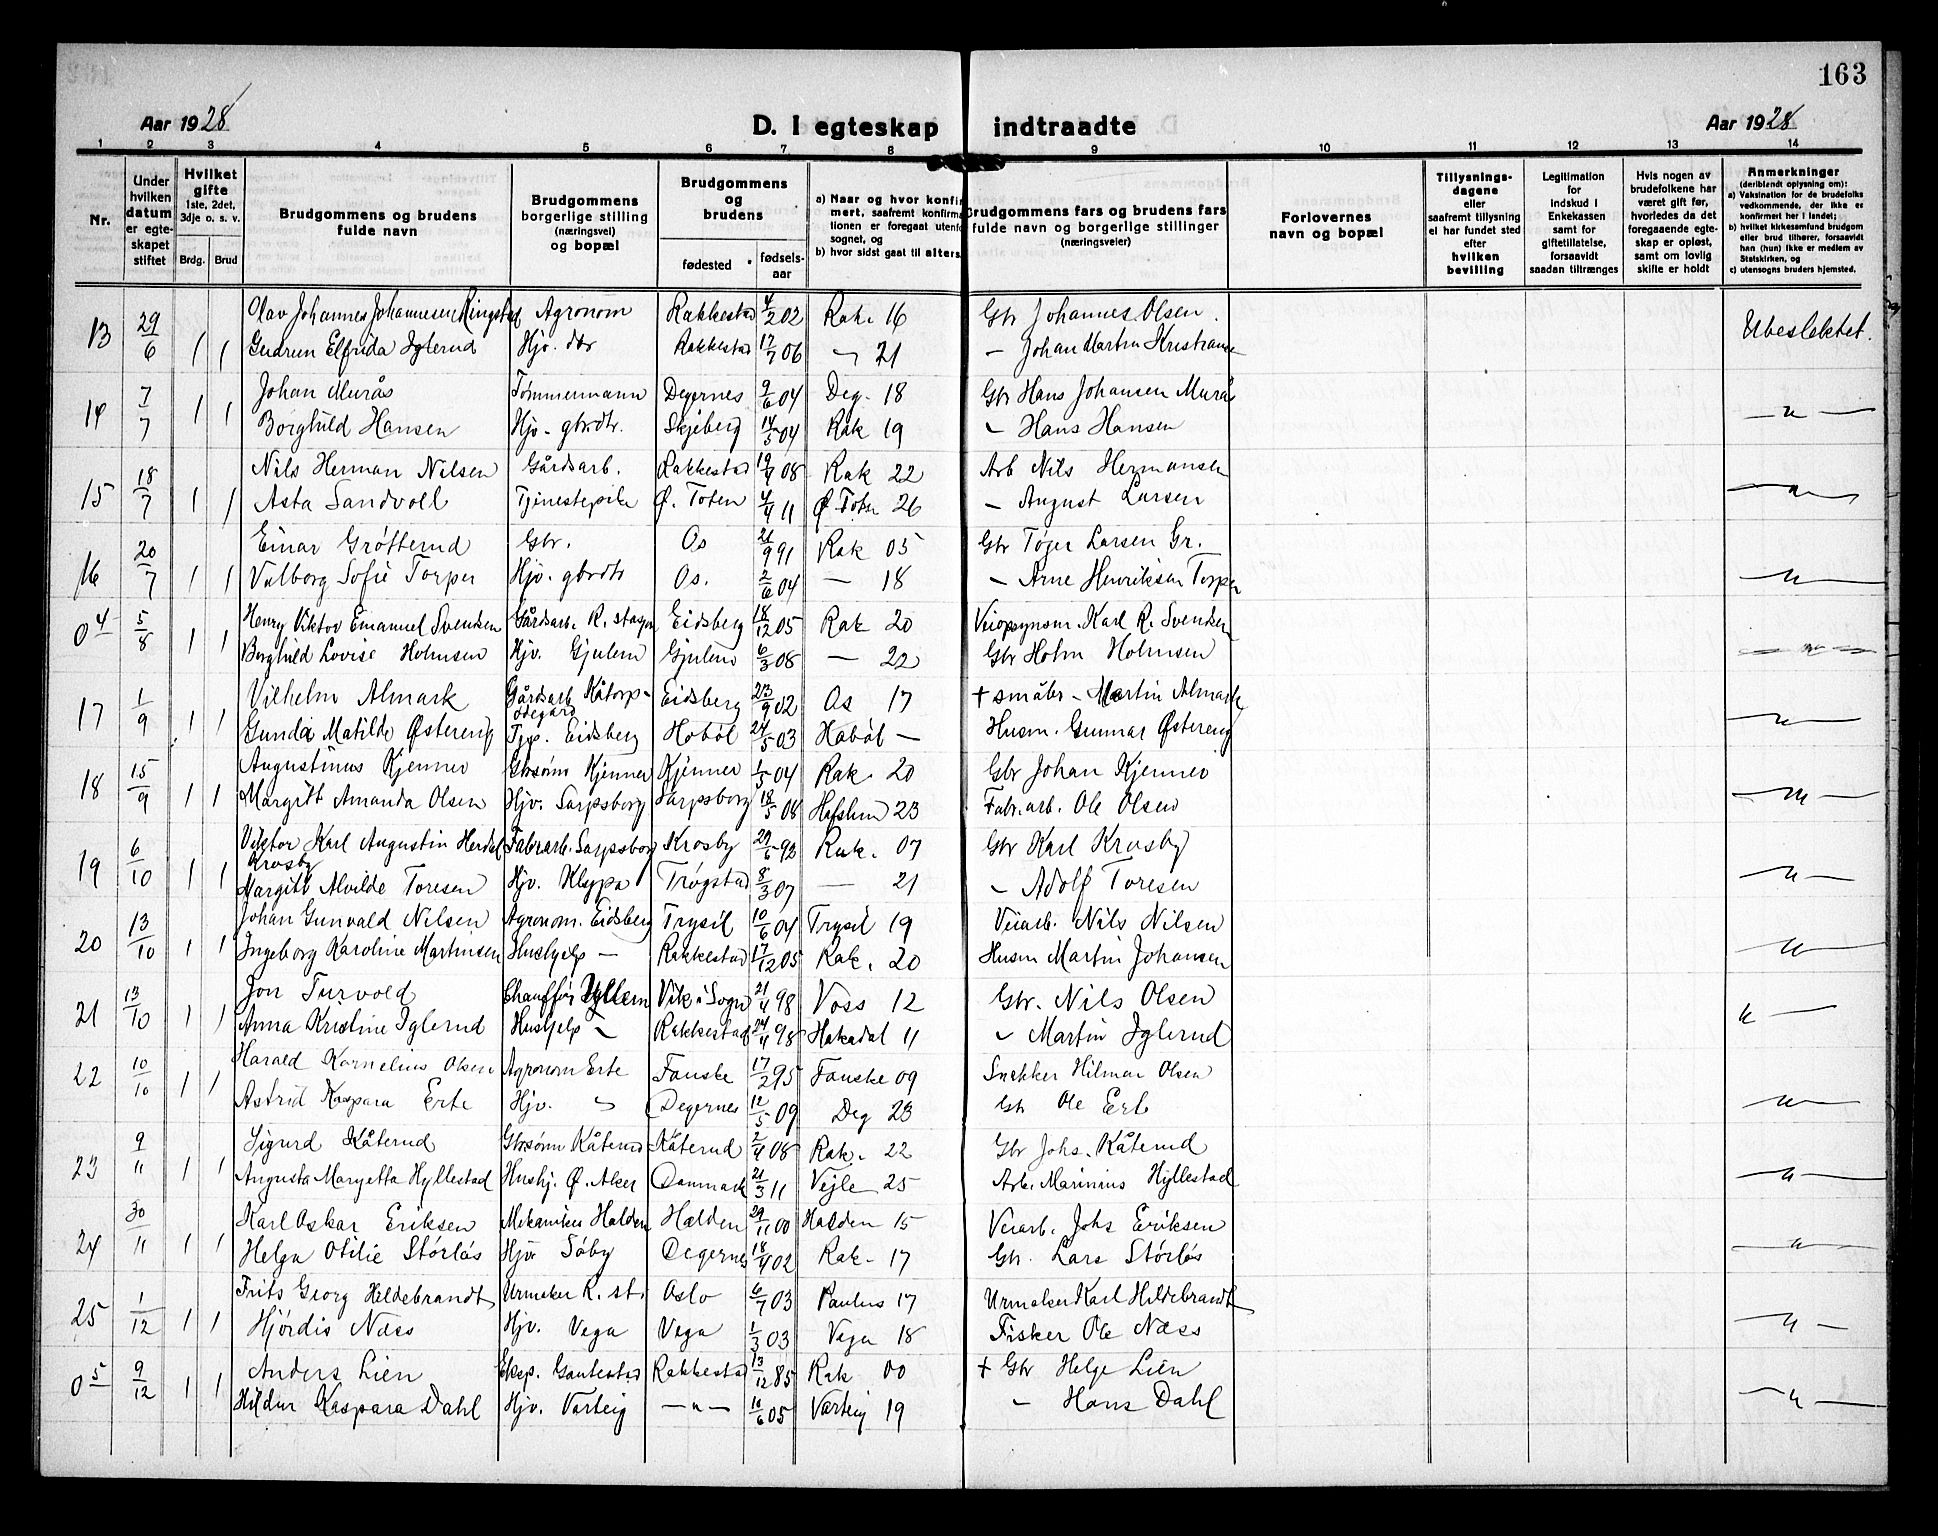 163
Aar 1928
D. I egteskap indtraadte
Aar 1928
1 2 3 4 5 6 7 8 9 10 11 12 13 14
Nr.
Under hvilken datum er egte- skapet stiftet
Hvilket gifte 1ste, 2det, 3dje o. s. v.
Brdg. Brud
Brudgommens og brudens fulde navn
Brudgommens borgerlige stilling (næringsvei) og bopæl
Brudgommens og brudens
fødested
fødsels- aar
a) Naar og hvor konfir mert, saafremt konfirma tionen er foregaat utenfo sognet, og
b) hvor sidst gaat til alters.
Brudgommens fars og brudens fars fulde navn og borgerlige stillinger (næringsveier)
Forlovernes navn og bopæl
Tillysnings- dagene eller saafremt tillysning ei har fundet sted efter hvilken bevilling
Legitimation for indskud i Enkekassen samt for giftetillatelse, forsaavidt saadan tiltrænges
Hvis nogen av brudefolkene har været gift før, hvorledes da det foregaaende egte- skap er opløst, samt om lovlig skifte er holdt
Anmerkninger (deriblandt oplysning om):
a) Vaksination for de brudefolks vedkommende, der ikke er konfirmert her i landet;
b) hvilket kirkesamfund brudgom eller brud tilhører, forsaavidt han (hun) ikke er medlem av Statskirken, og
c) utensogns bruders hjemsted.
13 29/6 Olav Johannes Johannesen Ringstad Agronom Rakkestad 4/2 02 Rak. 16 Gbr Johannes Olsen. Ubeslektet.
1 1 Gudrun Elfrida Iglerud Hjv. dtr Rakkestad 17/7 06 " 21 – Johan Martin Kristiansen
14 7/7 Johan Murås Tømmermann Degernes 9/6 04 Deg. 18 Gbr Hans Johansen Murås
1 1 Borghild Hansen Hjv. gbrdtr. Skjeberg 14/5 04 Rak 19 – Hans Hansen – " –
15 18/7 Nils Herman Nilsen Gårdsarb. Rakkestad 19/9 08 Rak 22 Arb Nils Hermansen
1 1 Asta Sandvoll Tjenestepike Ø. Toten 4/4 11 Ø. Toten 26 – August Larsen – " –
16 20/7 Einar Grøtterud Gbr. Os 21/9 91 Rak 05 Gbr Tøger Larsen Gr.
1 1 Valborg Sofie Torper Hjv. gbrdtr Os. 2/6 04 – 18 – Arne Henriksen Torper – " –
04 5/8 Henry Viktor Emanuel Svendsen Gårdsarb. R. stasjon Eidsberg 18/12 05 Rak 20 Veiopsynsm. Karl R. Svendsen
1 1 Borghild Lovise Holmsen Hjv. Gjulem Gjulem 6/3 08 – 22 Gbr Holm Holmsen – " –
17 1/9 Vilhelm Almark Gårdsarb. Kåtorp- ødegård Eidsberg 23/9 02 Os 17 + småbr – Martin Almark
1 1 Gunda Matilde Østereng Tjp. Eidsberg Hobøl 24/5 03 Hobøl – Husm. Gunnar Østereng – " –
18 15/9 Augustinus Kjenner Gbrsønn Kjenner Kjenner 1/5 04 Rak. 20 Gbr Johan Kjenner
1 1 Margitt Amanda Olsen Hjv. Sarpsborg Sarpsborg 18/5 08 Hafslun 23 Fabr.arb. Ole Olsen – " –
19 6/10 Viktor Karl Augustin Herdal Krosby Fabrarb. Sarpsborg Krosby 29/6 92 Rak. 07 Gbr Karl Krosby
1 1 Margitt Alvilde Toresen Hjv. Kleypa Trøgstad 8/3 07 – 21 – Adolf Toresen – " –
20 13/10 Johan Gunvald Nilsen Agronom. Eidsberg Trysil 10/6 04 Trysil 19 Veiarb. Nils Nilsen
1 1 Ingeborg Karoline Martinsen Hushjelp – Rakkestad 17/12 05 Rak. 20 Husm Martin Johansen – " –
21 13/10 Jon Turvold Chauffør Vik i Sogn 21/4 98 Voss 12 Gbr. Nils Olsen
1 1 Anna Kristine Iglerud Hushjelp " Rakkestad 24/4 98 Hakadal 11 " Martin Iglerud " –
22 10/10 Harald Kornelius Olsen Agronom Erte Fauske 17/2 95 Fauske 09 Snekker Hilmar Olsen
1 1 Astrid Kaspara Erte Hjv. " Degernes 12/5 09 Deg 23 Gbr Ole Erte – " –
23 9/11 Sigurd Kåterud Gbrsønn Kåterud Kåterud 2/4 08 Rak. 22 Gbr Johs. Kåterud
1 1 Augusta Margetta Hyllestad Hushj. Ø. Aker Danmark 21/3 11 Vejle 25 Arb. Marinius Hyllestad – " –
24 30/11 Karl Oskar Eriksen Mekaniker Halden Halden 29/11 00 Halden 15 Veiarb. Johs Eriksen
1 1 Helga Otilie Størløs Hjv Søby Degernes 18/4 02 Rak – 17 Gbr. Lars Størløs – " –
25 1/12 Frits Georg Hildebrandt Urmaker R. st. Oslo 6/7 03 Paulus 17 Urmaker Karl Hildebrandt
1 1 Hjørdis Næss Hjv. Vega Vega 1/3 03 Vega 18 Fisker Ole Næss – " –
05 9/12 Anders Lien Eksp. Gautestad Rakkestad 13/12 85 Rak 00 + Gbr Helge Lien
1 1 Hildur Kaspara Dahl Hjv. Varteig – " – 10/6 05 Varteig 19 – Hans Dahl – " –